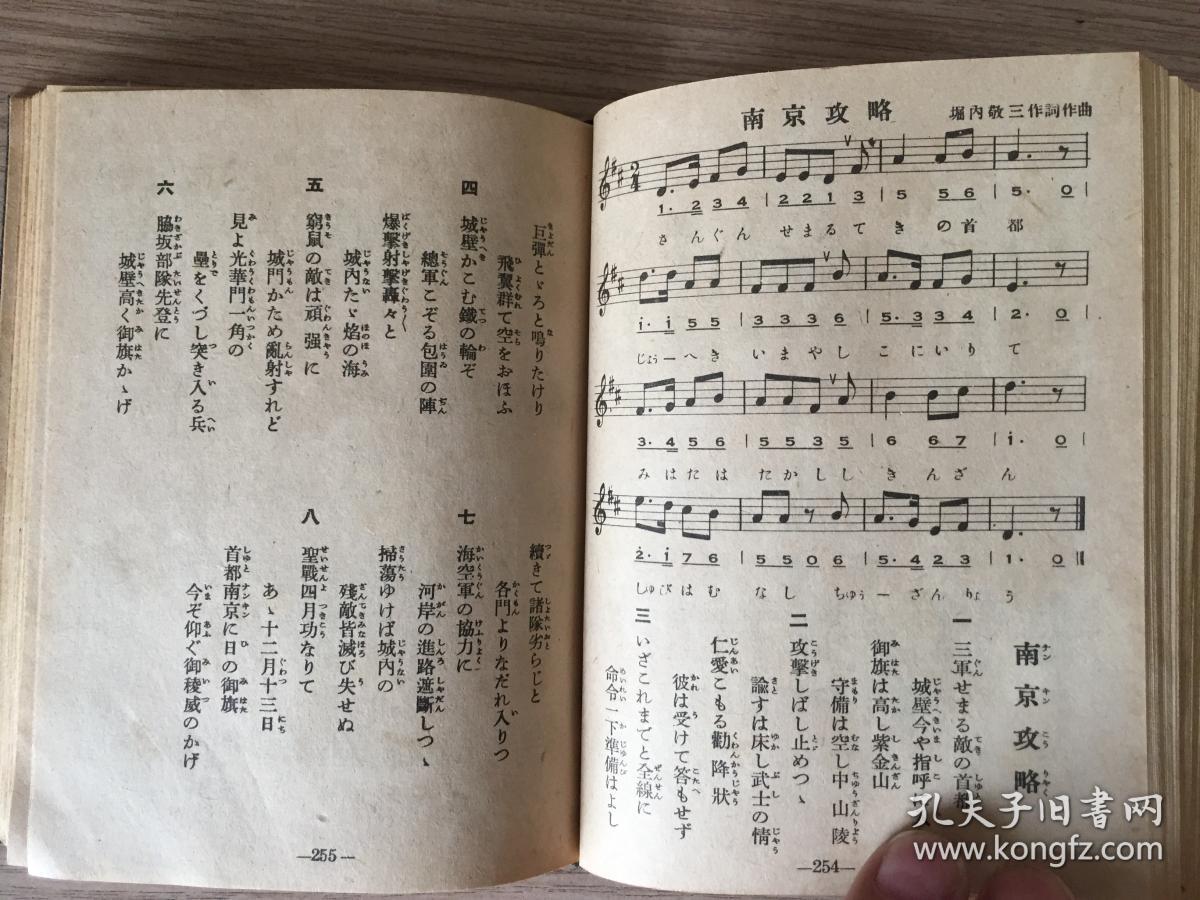 南京攻略
堀內敬三作詞作曲
1. 2 3 4 | 2 2 1 3 | 5 5 6 | 5. 0
さんぐん せまるて きの首 都
i. i 5 5 | 3 3 5 6 | 5. 3 3 4 | 2. 0
じょーへき いまやし こにいり て
3. 4 5 6 | 5 5 3 5 | 6 6 7 | i. 0
みはたは たかしし きんざ ん
2. i 7 6 | 5 5 0 6 | 5. 4 2 3 | 1. 0
しゅびはむ なし ちゅう ーざんりょ う
南京攻略
一 三軍せまる敵の首都
城壁今や指呼
御旗は高し紫金山
守備は空し中山陵
二 攻撃しばし止めつゝ
諭すは床し武士の情
仁愛こもる勸降狀
彼は受けて答もせず
三 いざこれまでと全線に
命令一下準備はよし
—254—
巨彈とゞろと鳴りたけり
飛翼群て空をおほふ
四 城壁かこむ鐵の輪ぞ
總軍こぞる包圍の陣
爆擊射擊轟々と
城內たゞ焰の海
五 窮鼠の敵は頑强に
城門かため亂射すれど
見よ光華門一角の
壘をくづし突き入る兵
六 脇坂部隊先登に
城壁高く御旗かゝげ
續きて諸隊劣らじと
各門よりなだれ入りつ
七 海空軍の協力に
河岸の進路遮斷しつゝ
掃蕩ゆけば城內の
殘敵皆滅び失せぬ
八 聖戰四月功なりて
あゝ十二月十三日
首都南京に日の御旗
今ぞ仰ぐ御稜威のかげ
—255—
孔夫子旧書网
www.kongfz.com